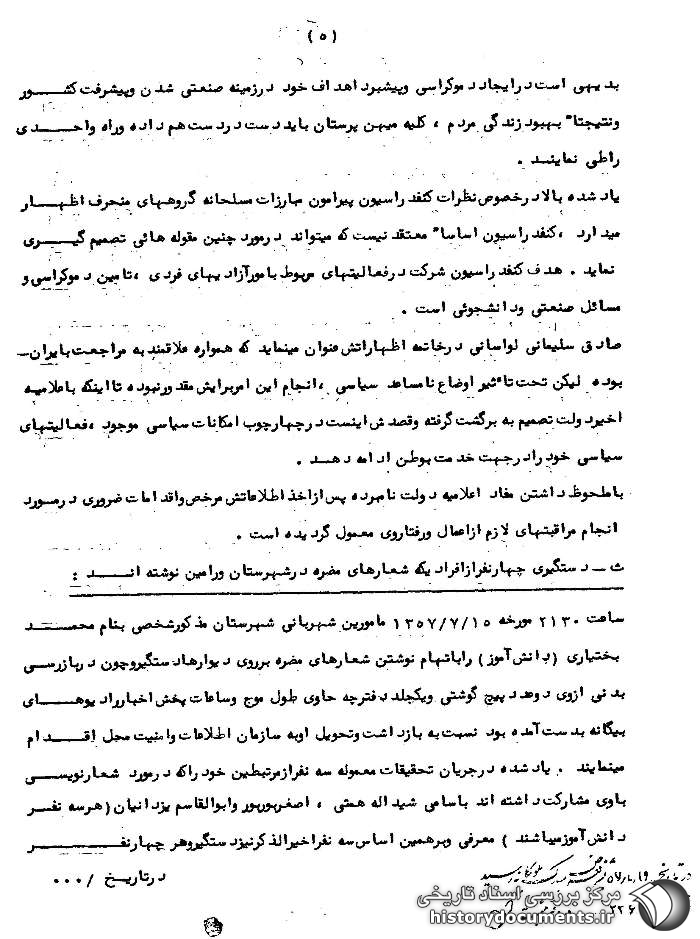 (۵)
بدیهی است در ایجاد دموکراسی وپیشبرد اهداف خود درزمینه صنعتی شدن وپیشرفت کشور
ونتیجتا" بهبود زندگی مردم ، کلیه میهن پرستان باید دست در دست هم داده وراه واحدی
راطی نمایند .
یاد شده بالا درخصوص نظرات کنفدراسیون پیرامون مبارزات مسلحانه گروههای منحرف اظهار
میدارد ، کنفدراسیون اساسا" معتقد نیست که میتواند درمورد چنین مقوله هائی تصمیم گیری
نماید . هدف کنفدراسیون شرکت درفعالیتهای مربوط بامورآزادیهای فردی ، تامین دموکراسی و
مسائل صنعتی ودانشجوئی است .
صادق سلیمانی لواسانی درخاتمه اظهاراتش عنوان مینماید که همواره علاقمند به مراجعت بایران
بوده لیکن تحت تاثیر اوضاع نامساعد سیاسی ، انجام این امر برایش مقدور نبوده تا اینکه با اعلامیه
اخیر دولت تصمیم به برگشت گرفته وقصدش اینست درچهارچوب امکانات سیاسی موجود ، فعالیتهای
سیاسی خود رادرجهت خدمت بوطن ادامه دهد .
باملحوظ داشتن مفاد اعلامیه دولت نامبرده پس از اخذ اطلاعاتش مرخص واقدامات ضروری درمورد
انجام مراقبتهای لازم ازاعمال ورفتاروی معمول گردیده است .
ث - دستگیری چهارنفرازافرادیکه شعارهای مضره درشهرستان ورامین نوشته اند :
ساعت ۲۱۳۰ مورخه ۱۳۵۷/۷/۱۵ مامورین شهربانی شهرستان مذکورشخصی بنام محمد
بختیاری (دانش آموز) راباتهام نوشتن شعارهای مضره برروی دیوارها دستگیروچون دربازرسی
بدنی ازوی دوعدد پیچ گوشتی ویکجلد دفترچه حاوی طول موج وساعات پخش اخبار رادیوهای
بیگانه بدست آمده بود نسبت به بازداشت وتحویل اوبه سازمان اطلاعات وامنیت محل اقدام
مینمایند . یاد شده درجریان تحقیقات معموله سه نفرازمرتبطین خود راکه درمورد شعارنویسی
باوی مشارکت داشته اند باسامی شیداله همتی ، اصغرپورپور وابوالقاسم یزدانیان (هرسه نفر
دانش آموزمیباشند) معرفی وبرهمین اساس سه نفراخیرالذکرنیزدستگیروهر چهارنفر
درتاریخ /۰۰۰
مرکز بررسی اسناد تاریخی
historydocuments.ir